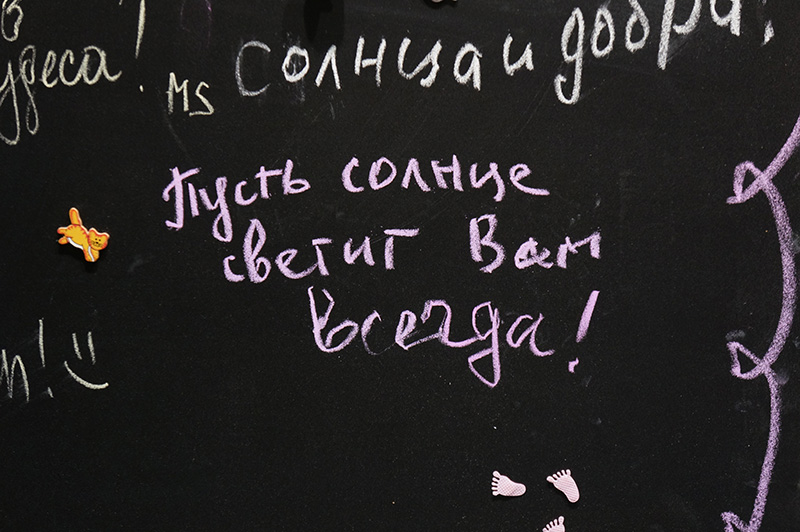 чудеса!
Солнца и добра!
MS
Пусть солнце
светит Вам
Всегда!